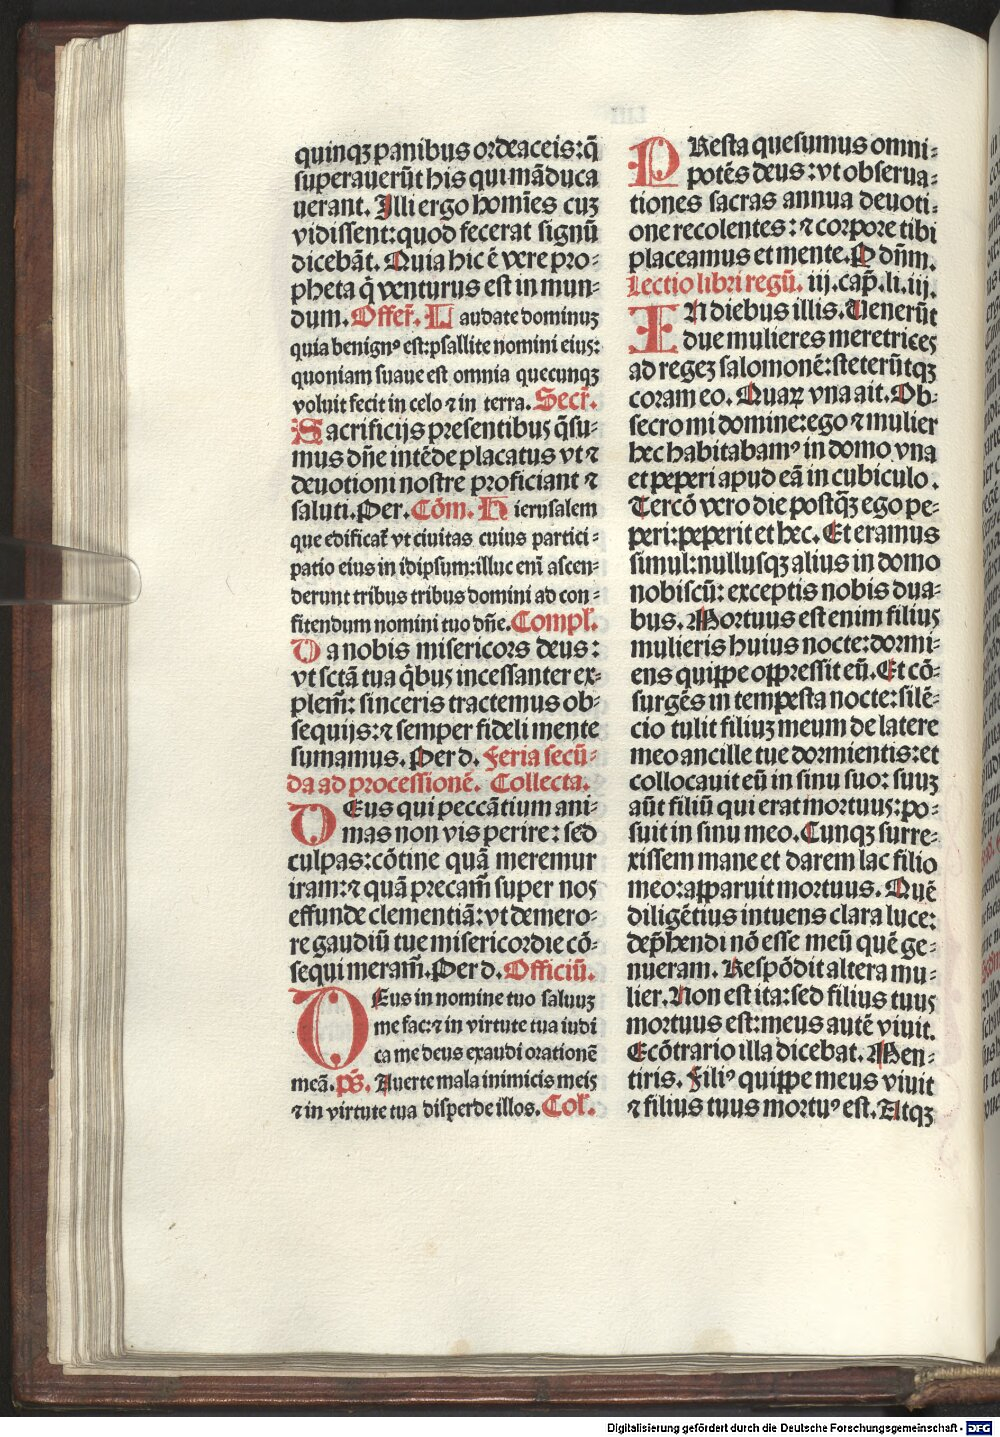 quinqꝫ panibus ordeaceis: q̄
superauerūt his qui māduca
uerant. Illi ergo homīes cuꝫ
vidissent: quod fecerat signū
dicebāt. Quia hic ē vere pro-
pheta q̄ venturus est in mun-
dum. Offer̄. Laudate dominuꝫ
quia benignꝰ est: psallite nomini eius:
quoniam suaue est omnia quecunqꝫ
voluit fecit in celo ⁊ in terra. Secr̄.
Sacrificijs presentibus q̄su-
mus dn̄e intēde placatus vt ⁊
deuotioni nostre proficiant ⁊
saluti. Per. Cōm. Hierusalem
que edificat̄ vt ciuitas cuius partici-
patio eius in idipsum: illuc eni ascen-
derunt tribus tribus domini ad con-
fitendum nomini tuo dn̄e. Compl̄.
Da nobis misericors deus:
vt sctā tua q̄bus incessanter ex-
plem̄: sinceris tractemus ob-
sequijs: ⁊ semper fideli mente
sumamus. Per d. Feria secū-
da ad processionē. Collecta.
DEus qui peccātium ani-
mas non vis perire: sed
culpas: cōtine quā meremur
iram: ⁊ quā precam̄ super nos
effunde clementiā: vt de mero-
re gaudiū tue misericordie cō-
sequi meram̄. Per d. Officiū.
DEus in nomine tuo saluuꝫ
me fac: ⁊ in virtute tua iudi
ca me deus exaudi orationē
meā. ps̄. Auerte mala inimicis meis
⁊ in virtute tua disperde illos. Col̄.
PResta quesumus omni-
potēs deus: vt obserua-
tiones sacras annua deuoti-
one recolentes: ⁊ corpore tibi
placeamus et mente. P dn̄m.
Lectio libri regū. iij. cap̄. li. iij.
IN diebus illis. Venerūt
due mulieres meretrices
ad regeꝫ salomonē: steterūtqꝫ
coram eo. Quaꝝ vna ait. Ob-
secro mi domine: ego ⁊ mulier
hec habitabamꝰ in domo vna
et peperi apud eā in cubiculo.
Tercō vero die postq̄ꝫ ego pe-
peri: peperit et hec. Et eramus
simul: nullusqꝫ alius in domo
nobiscū: exceptis nobis dua-
bus. Mortuus est enim filius
mulieris huius nocte: dormi-
ens quippe oppressit eū. Et cō-
surgēs in tempesta nocte: silē-
cio tulit filiuꝫ meum de latere
meo ancille tue dormientis: et
collocauit eū in sinu suo: suuꝫ
aūt filiū qui erat mortuus: po-
suit in sinu meo. Cunqꝫ surre-
xissem mane et darem lac filio
meo: apparuit mortuus. Quē
diligētius intuens clara luce:
dep̄hendi nō esse meū quē ge-
nueram. Respōdit altera mu-
lier. Non est ita: sed filius tuus
mortuus est: meus autē viuit.
Ecōtrario illa dicebat. Men-
tiris. Filiꝰ quippe meus viuit
⁊ filius tuus mortuꝰ est. Atqꝫ
Digitalisierung gefördert durch die Deutsche Forschungsgemeinschaft - DFG